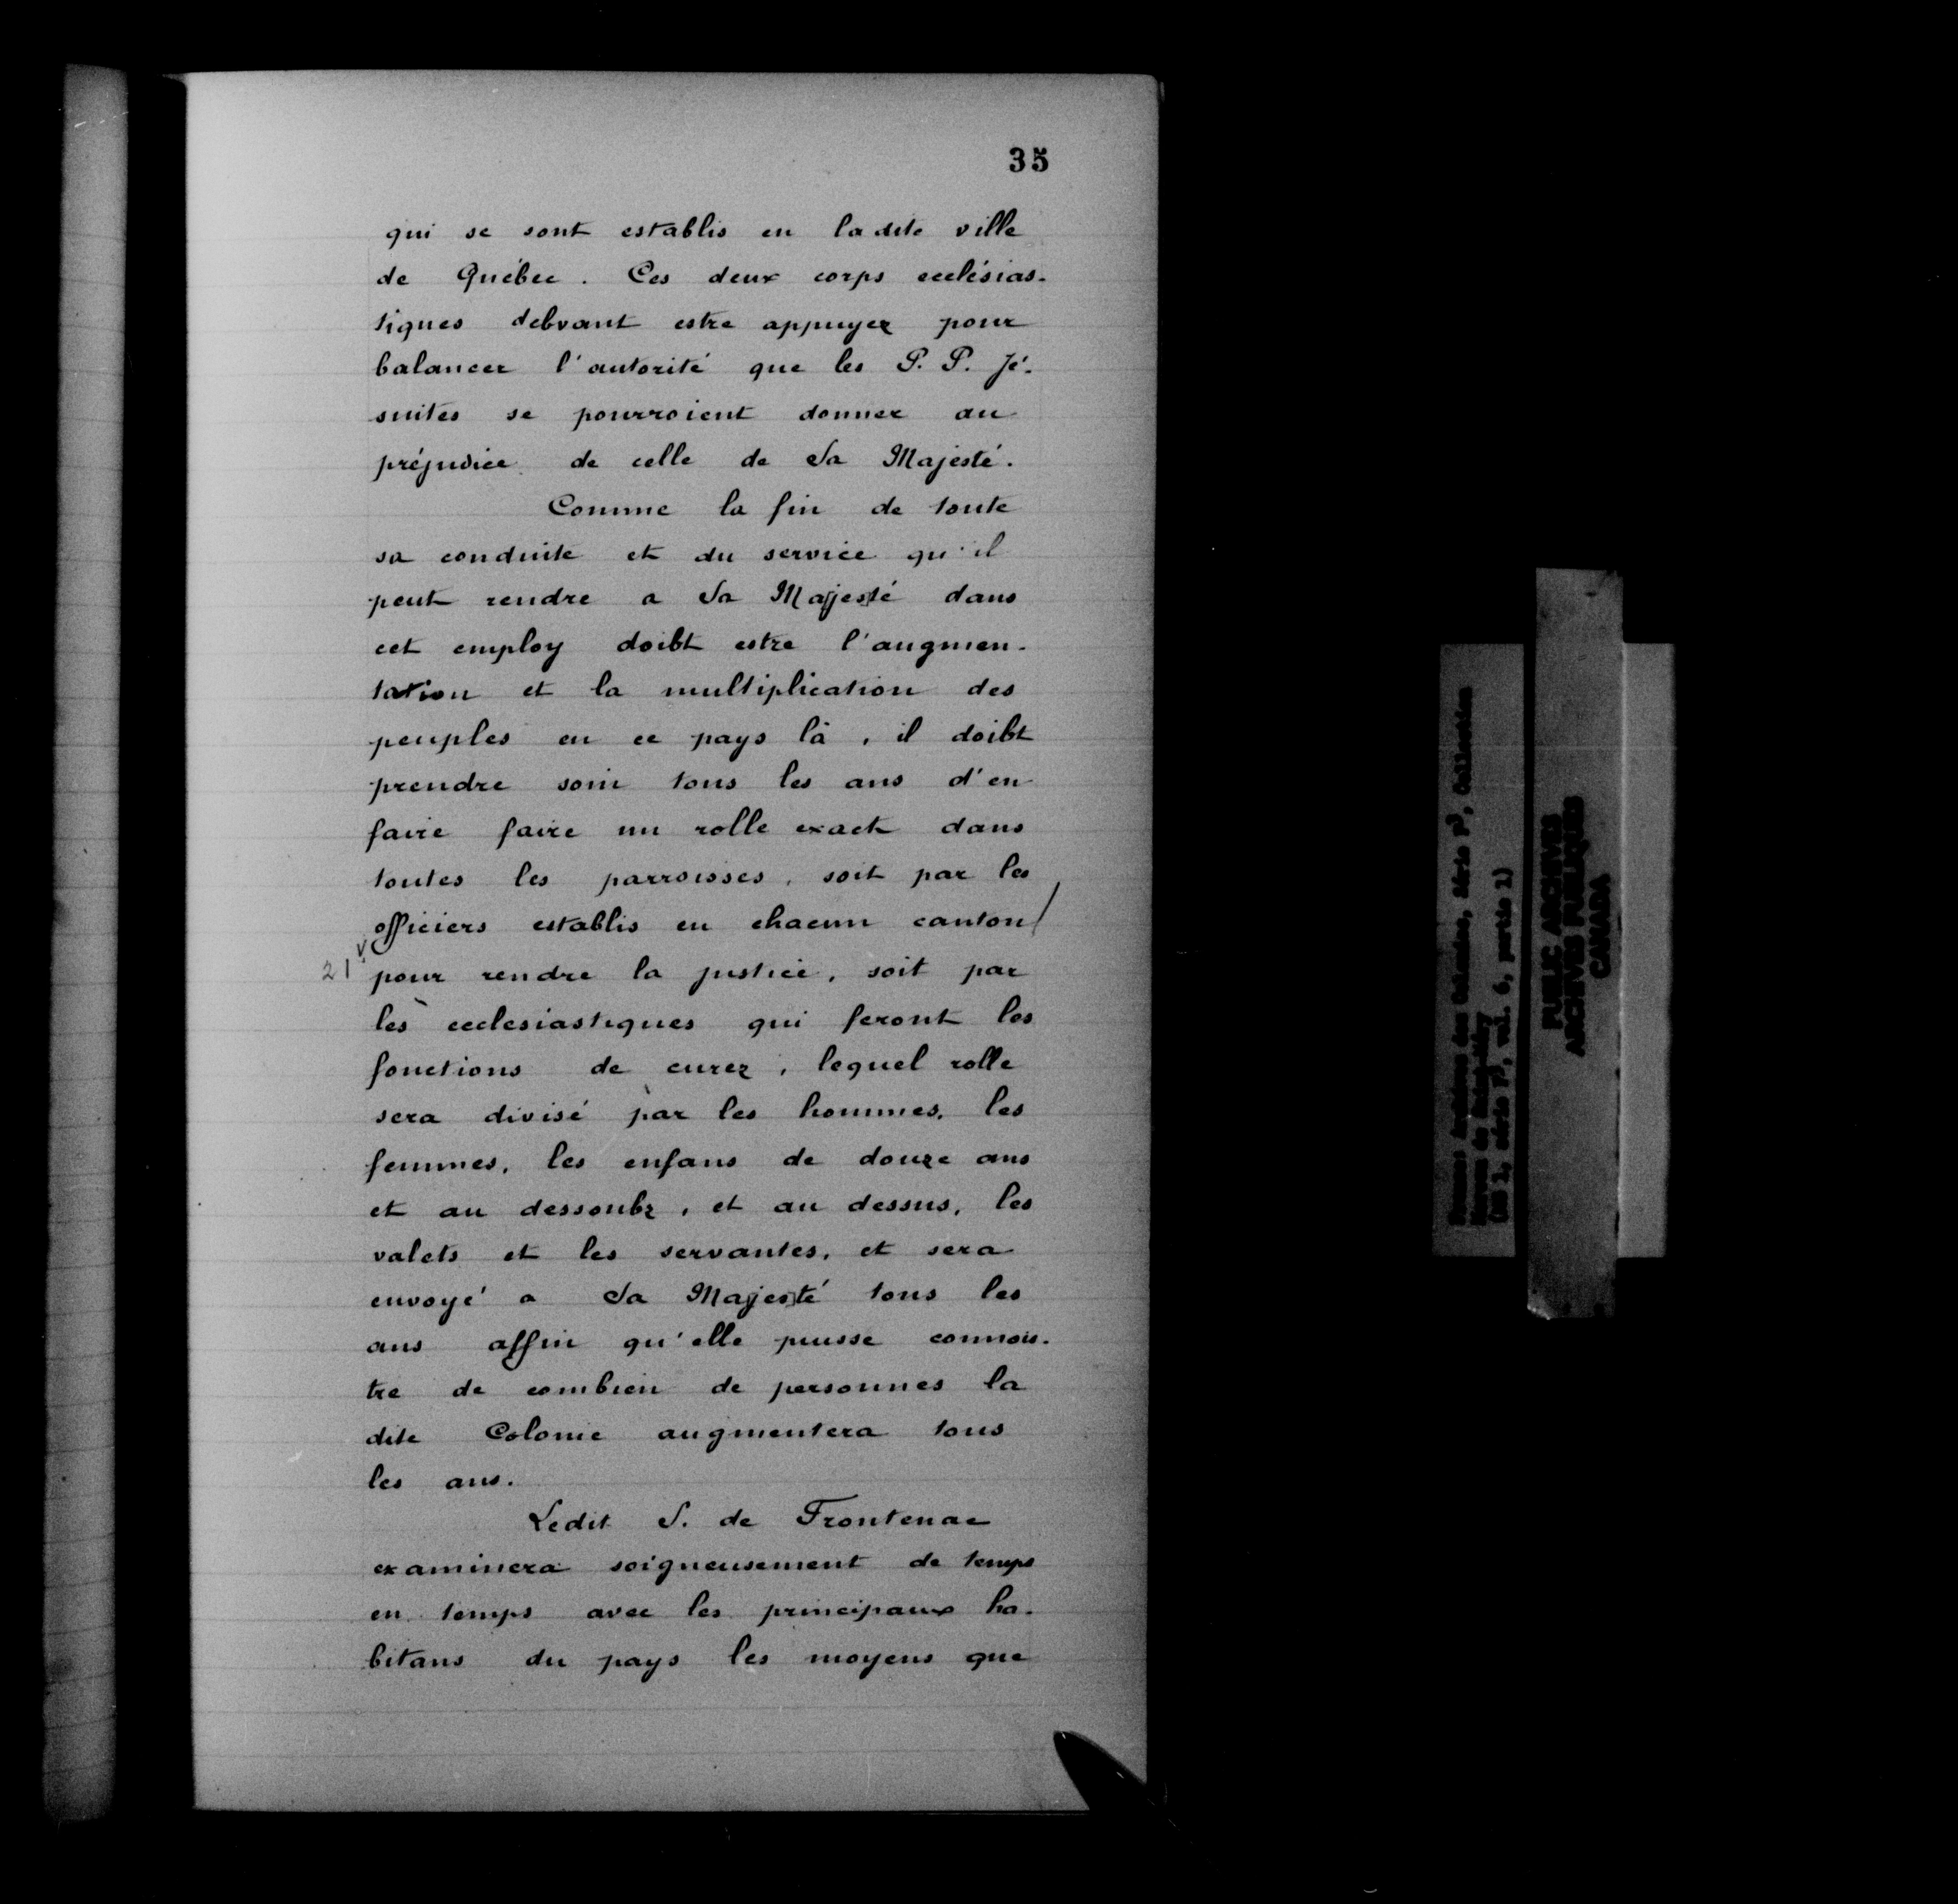 35
qui se sont establis en ladite ville
de Québec. Ces deux corps ecclésias-
tiques debvant estre appuyez pour
balancer l'autorité que les P. P. Jé-
suites se pourroient donner au
préjudice de celle de Sa Majesté.
Comme la fin de toute
sa conduite et du service qu'il
peut rendre a Sa Majesté dans
cet employ doibt estre l'augmen-
tation et la multiplication des
peuples en ce pays là, il doibt
prendre soin tous les ans d'en
faire faire un rolle exact dans
toutes les parroisses, soit par les
officiers establis en chacun canton/
21 v pour rendre la justice, soit par
les ecclesiastiques qui feront les
fonctions de curez, lequel rolle
sera divisé par les hommes, les
femmes, les enfans de douze ans
et au dessoubz, et au dessus, les
valets et les servantes, et sera
envoyé a Sa Majesté tous les
ans affin qu'elle puisse connois-
tre de combien de personnes la
dite Colonie augmentera tous
les ans.
Ledit S. de Frontenac
examinera soigneusement de temps
en temps avec les principaux ha-
bitans du pays les moyens que
Archives des Colonies, Série F3, Collection
Moreau de
(MG 1, série F3, vol. 6, partie 1)
PUBLIC ARCHIVES
ARCHIVES PUBLIQUES
CANADA